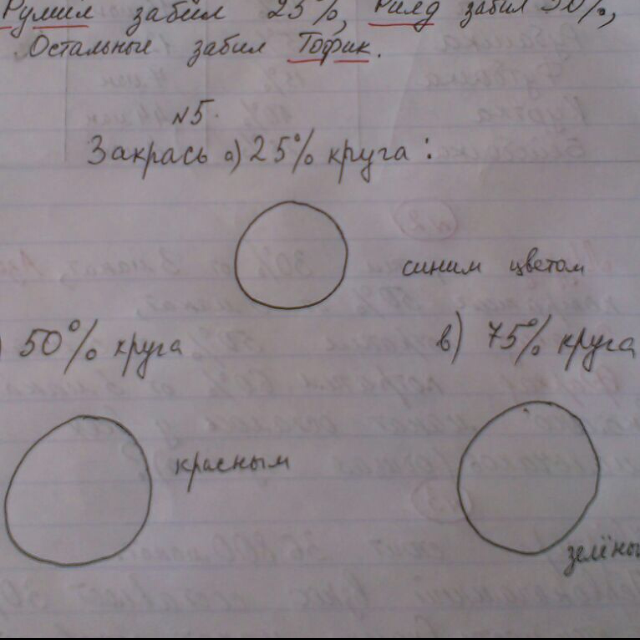 Румил забил 25%, Раяд забил 50%,
Остальные забил Тофик.
№5.
Закрась а) 25% круга:
синим цветом
) 50% круга
в) 75% круга
красным
зелёны